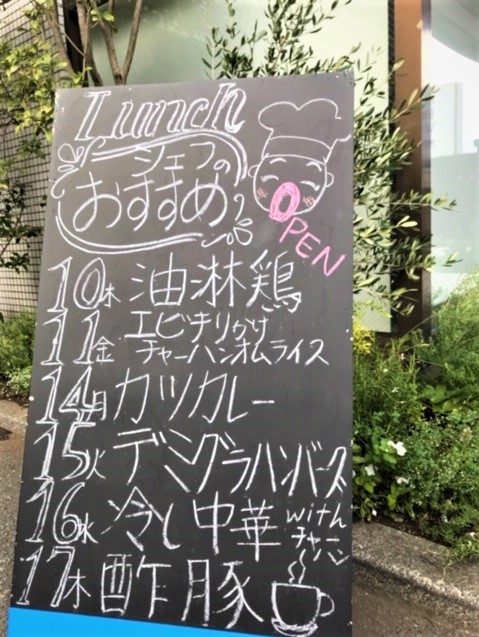 Lunch
シェフの
おすすめ
OPEN
10木 油淋鶏
11金 エビチリがけ
チャーハンオムライス
14月 カツカレー
15火 デミグラハンバーグ
16水 冷し中華 with
チャーハン
17木 酢豚